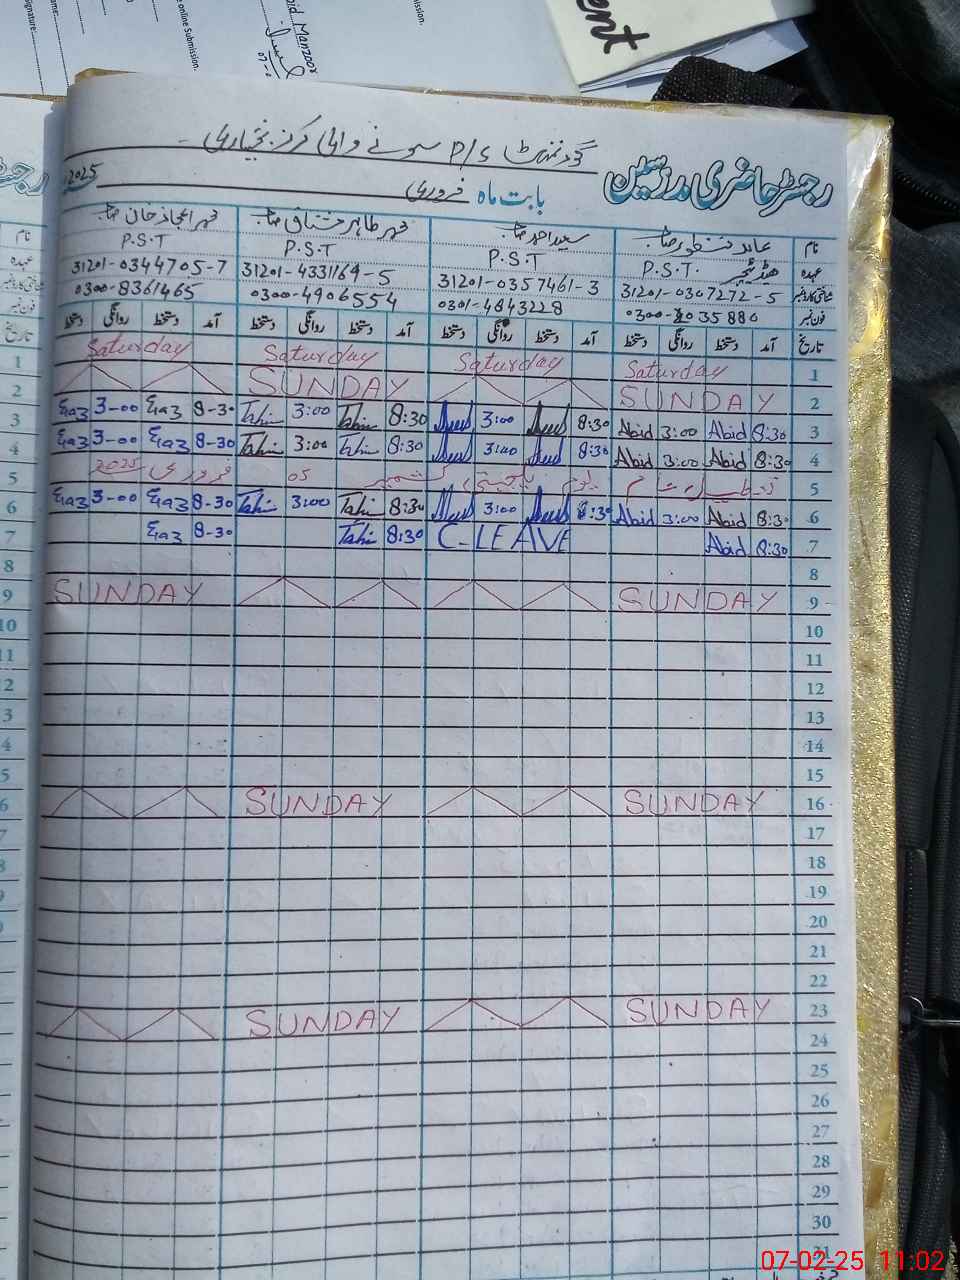 online Submission.
Manzoor
ent
گورنمنٹ P/S سونے والی مرکز بختیاری
رجسٹر حاضری مدرسین
بابت ماہ فروری 2025
نام
عابد منظور صاحب
سعید احمد صاحب
محمد طاہر مشتاق صاحب
محمد اعجاز خان صاحب
عہدہ
ہیڈ ٹیچر P.S.T.
P.S.T
P.S.T
P.S.T
شناختی کارڈ نمبر
31201-0307272-5
31201-0357461-3
31201-4331164-5
31201-0344705-7
فون نمبر
0301-4843228
0300-4906554
0300-8361465
تاریخ آمد دستخط روانگی دستخط آمد دستخط روانگی دستخط آمد دستخط روانگی دستخط آمد دستخط روانگی دستخط
1 Saturday Saturday Saturday Saturday
2 SUNDAY SUNDAY
3 8:30 Abid 3:00 Abid 8:30 3:00 8:30 Tahir 3:00 Tahir 8-30 3-00
4 8:30 Abid 3:00 Abid 8:30 3:00 8:30 Tahir 3:00 Tahir 8-30 3-00
5 تعطیل یوم کشمیر 05 فروری 2025
6 8:30 Abid 3:00 Abid 8:30 3:00 8:30 Tahir 3:00 Tahir 8-30 3-00
7 8:30 Abid C-LEAVE 8:30 Tahir 8-30
8
9 SUNDAY SUNDAY
10
11
12
13
14
15
16 SUNDAY SUNDAY
17
18
19
20
21
22
23 SUNDAY SUNDAY
24
25
26
27
28
29
30
31
07-02-25 11:02